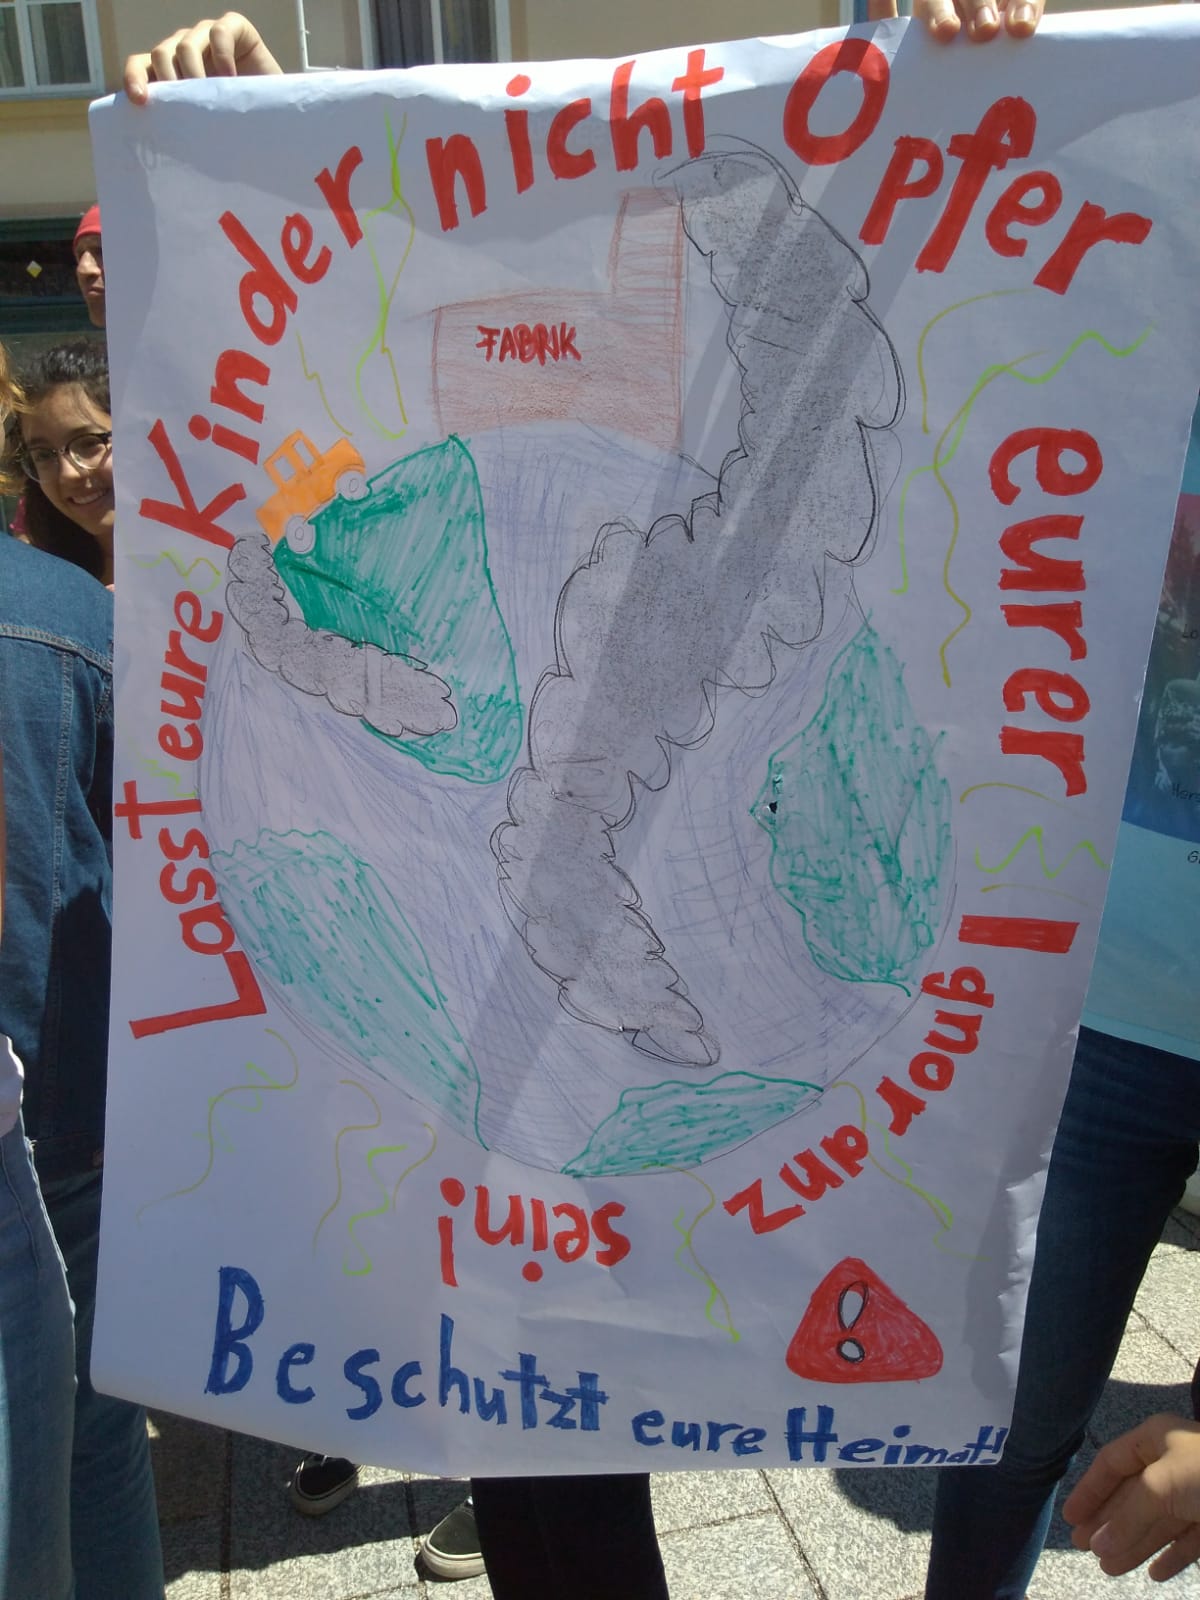 Lasst eure Kinder nicht Opfer eurer Ignoranz sein!
FABRIK
Beschutzt eure Heimat!